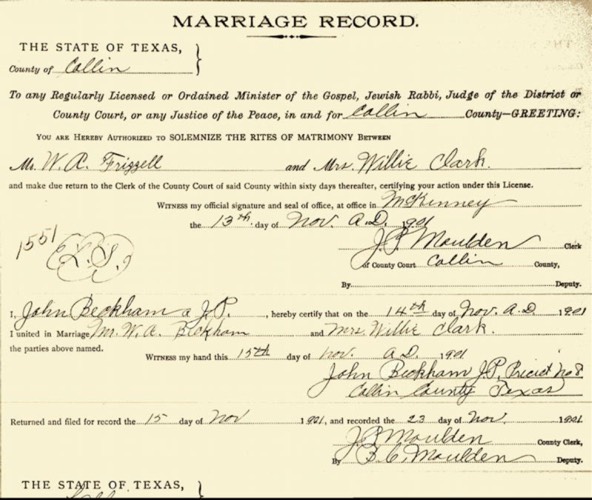 MARRIAGE RECORD.
THE STATE OF TEXAS,
County of Collin
To any Regularly Licensed or Ordained Minister of the Gospel, Jewish Rabbi, Judge of the District or
County Court, or any Justice of the Peace, in and for Collin County—GREETING:
YOU ARE HEREBY AUTHORIZED TO SOLEMNIZE THE RITES OF MATRIMONY BETWEEN
Mr. W. A. Frizzell and Mrs. Willie Clark.
and make due return to the Clerk of the County Court of said County within sixty days thereafter, certifying your action under this License.
WITNESS my official signature and seal of office, at office in McKinney
the 13th day of Nov. A.D. 1901
1551
L.S.
J. P. Moulden Clerk
of County Court Collin County,
By Deputy.
I, John Beckham a J.P., hereby certify that on the 14th day of Nov. A.D. 1901
I united in Marriage Mr. W. A. Beckham and Mrs Willie Clark.
the parties above named.
WITNESS my hand this 15th day of Nov. A.D. 1901
John Beckham J.P. Precict No 8
Collin County Texas
Returned and filed for record the 15 day of Nov 1901, and recorded the 23 day of Nov. 1901.
J. P. Moulden County Clerk,
By B. C. Moulden Deputy.
THE STATE OF TEXAS,